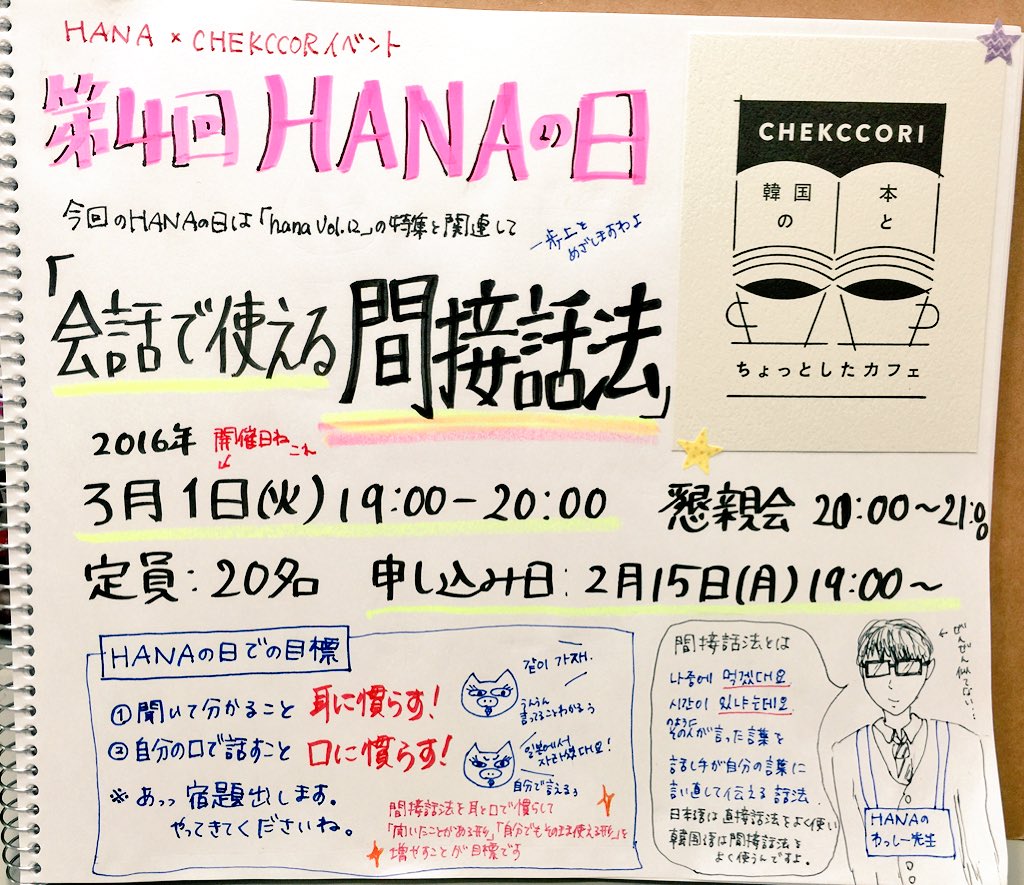 HANA × CHEKCCORIイベント
第4回 HANAの日
今回のHANAの日は「hana Vol.12」の特集と関連して
一歩上を
めざしますわよ
「会話で使える 間接話法」
CHEKCCORI
韓国の
本と
ちょっとしたカフェ
2016年 開催日ね
これ
3月1日(火) 19:00-20:00
懇親会 20:00〜21:00
定員:20名 申し込み日:2月15日(月) 19:00〜
HANAの日での目標
①聞いて分かること 耳に慣らす!
②自分の口で話すこと 口に慣らす!
※あっっ宿題出します。
やってきてくださいね。
같이 가재.
うんうん
言ってることわかるぅ
일본에서
자라
대요!
自分で言えるぅ
間接話法を耳と口で慣らして
「聞いたことがある形」「自分でもそのまま使える形」を
増やすことが目標です
間接話法とは
나중에 먹겠대요
시간이 있냐는데요
のように
その人が言った言葉を
話し手が自分の言葉に
言い直して伝える話法.
日本語は直接話法をよく使い
韓国語は間接話法を
よく使うんですよ。
←ぜんぜん似てない…
HANAの
わっしー先生